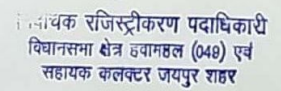 रजिस्ट्रीकरण पदाधिकारी
विधानसभा क्षेत्र हवामहल (049) एवं
सहायक कलक्टर जयपुर शहर